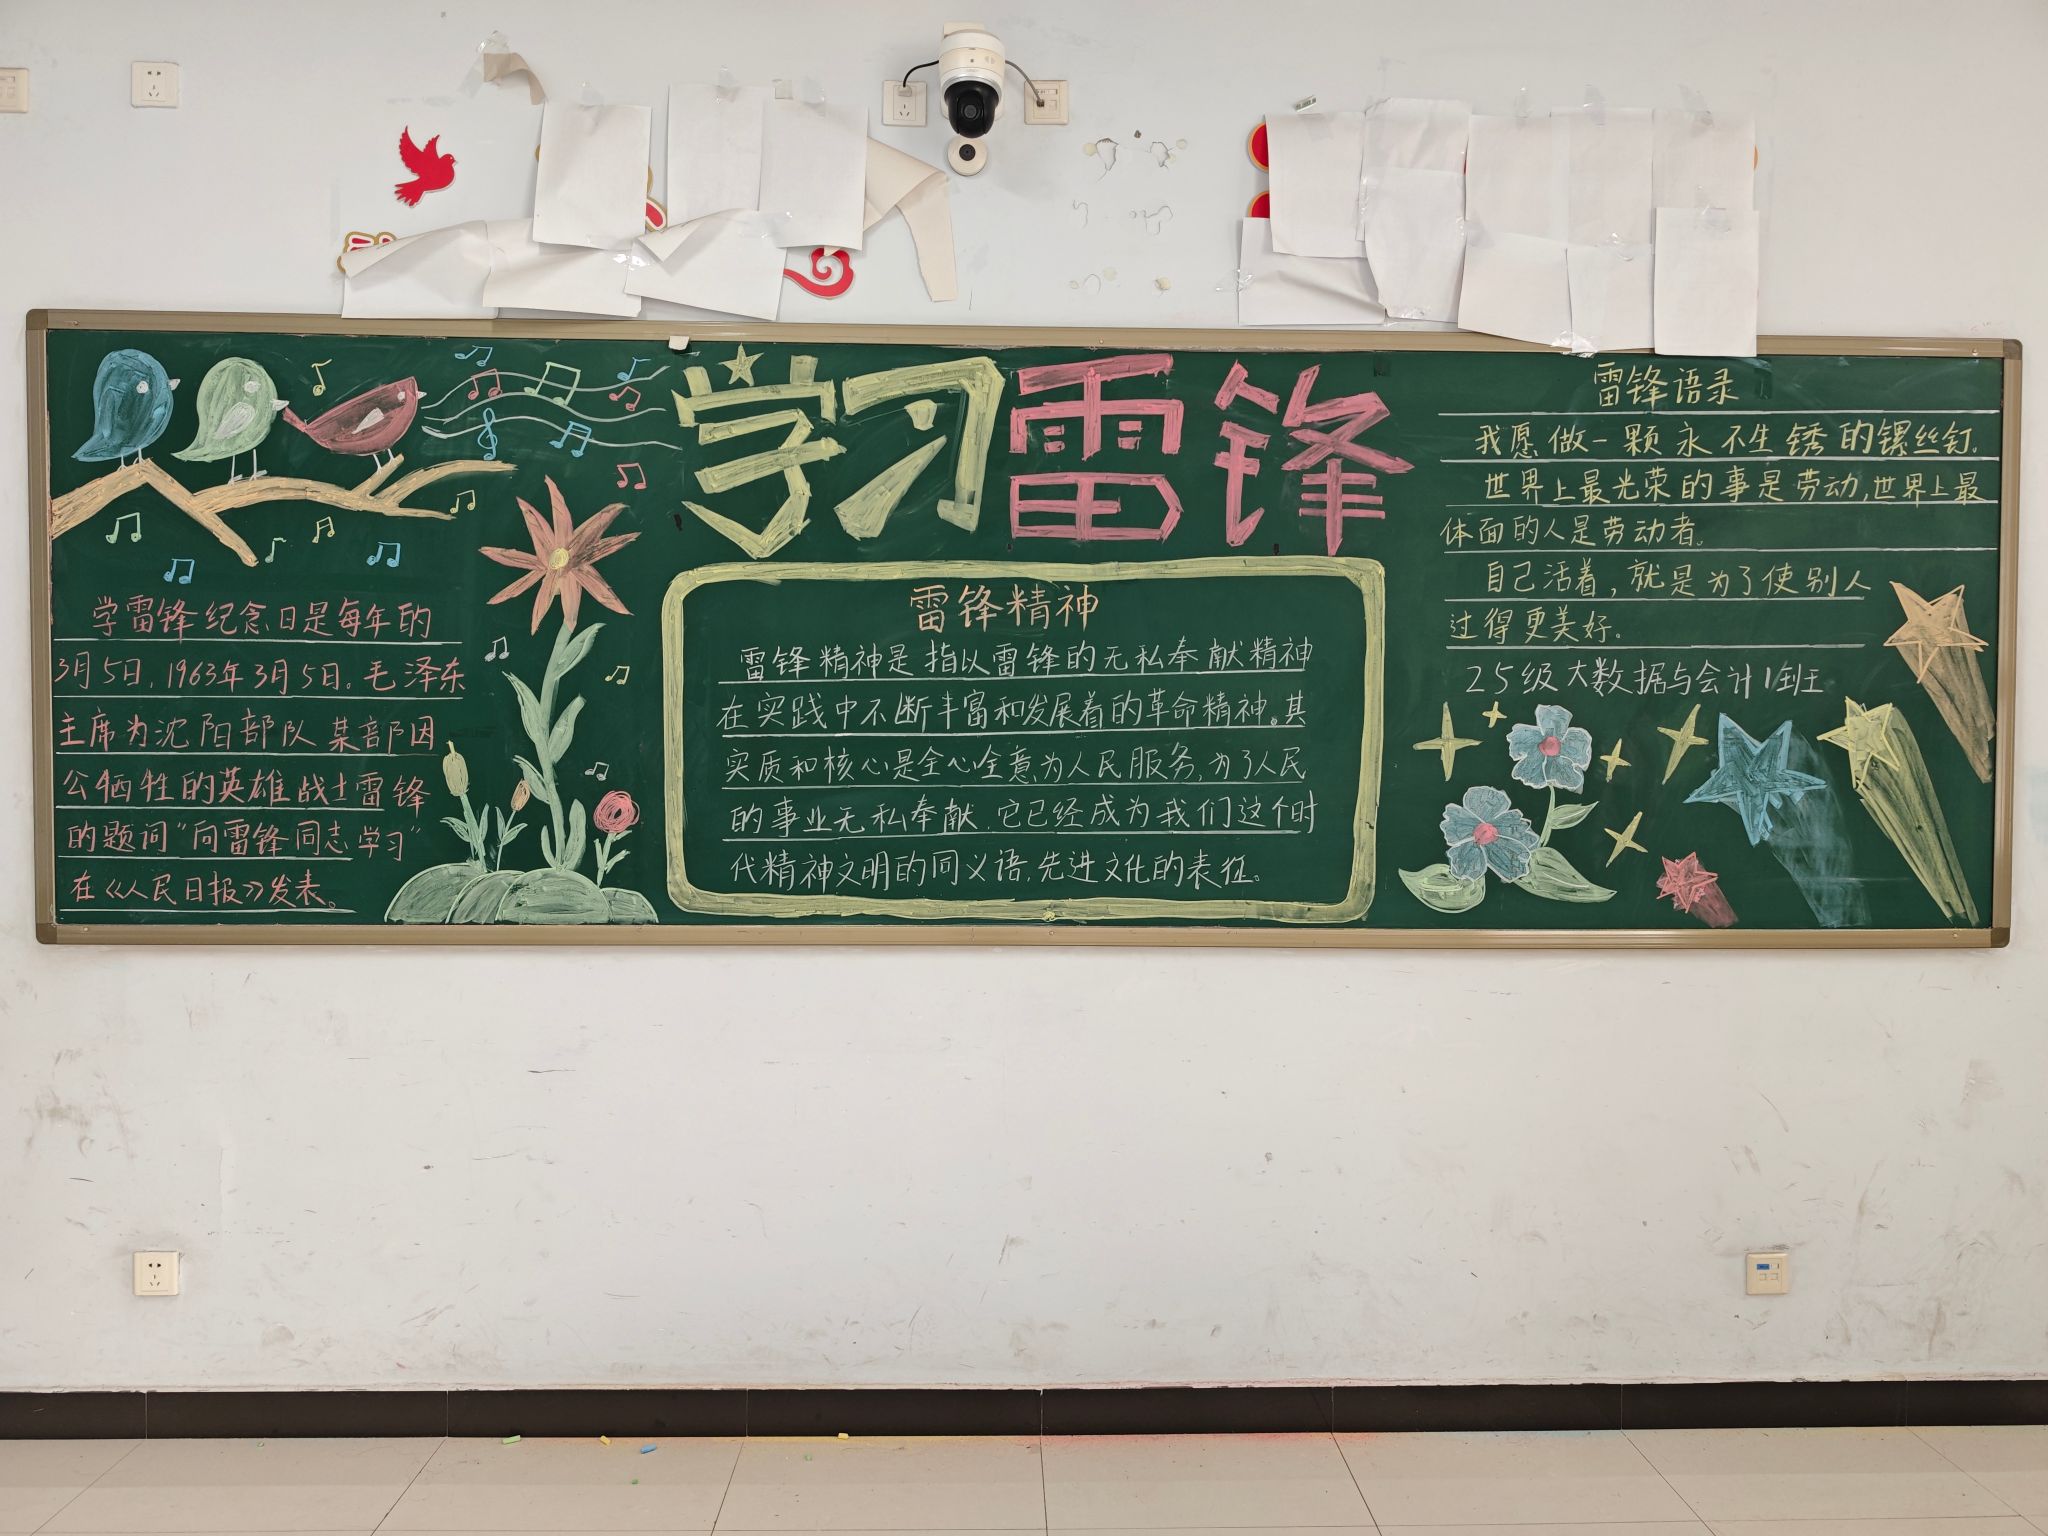 学习雷锋
学雷锋纪念日是每年的
3月5日,1963年3月5日。毛泽东
主席为沈阳部队某部因
公牺牲的英雄战士雷锋
的题词“向雷锋同志学习”
在《人民日报》发表。
雷锋精神
雷锋精神是指以雷锋的无私奉献精神
在实践中不断丰富和发展着的革命精神。其
实质和核心是全心全意为人民服务,为了人民
的事业无私奉献.它已经成为我们这个时
代精神文明的同义语,先进文化的表征。
雷锋语录
我愿做一颗永不生锈的镙丝钉.
世界上最光荣的事是劳动,世界上最
体面的人是劳动者。
自己活着,就是为了使别人
过得更美好。
25级大数据与会计1班